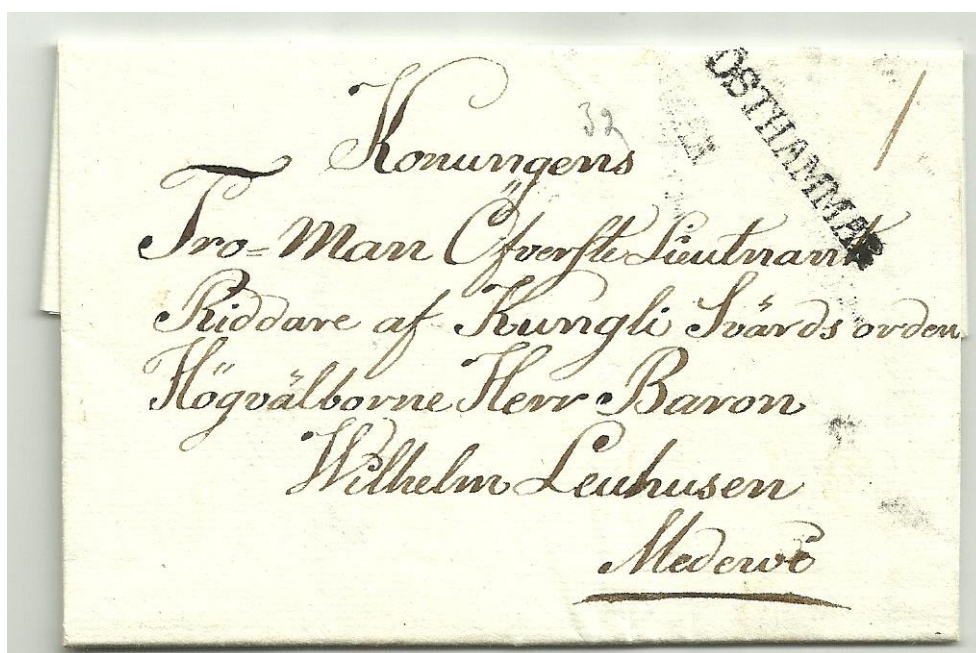 ÖSTHAMMAR
1
32
Konungens
Tro=Man Öfverste Lieutnant
Riddare af Kungli Svärds orden
Högvälborne Herr Baron
Wilhelm Leuhusen
Medewi